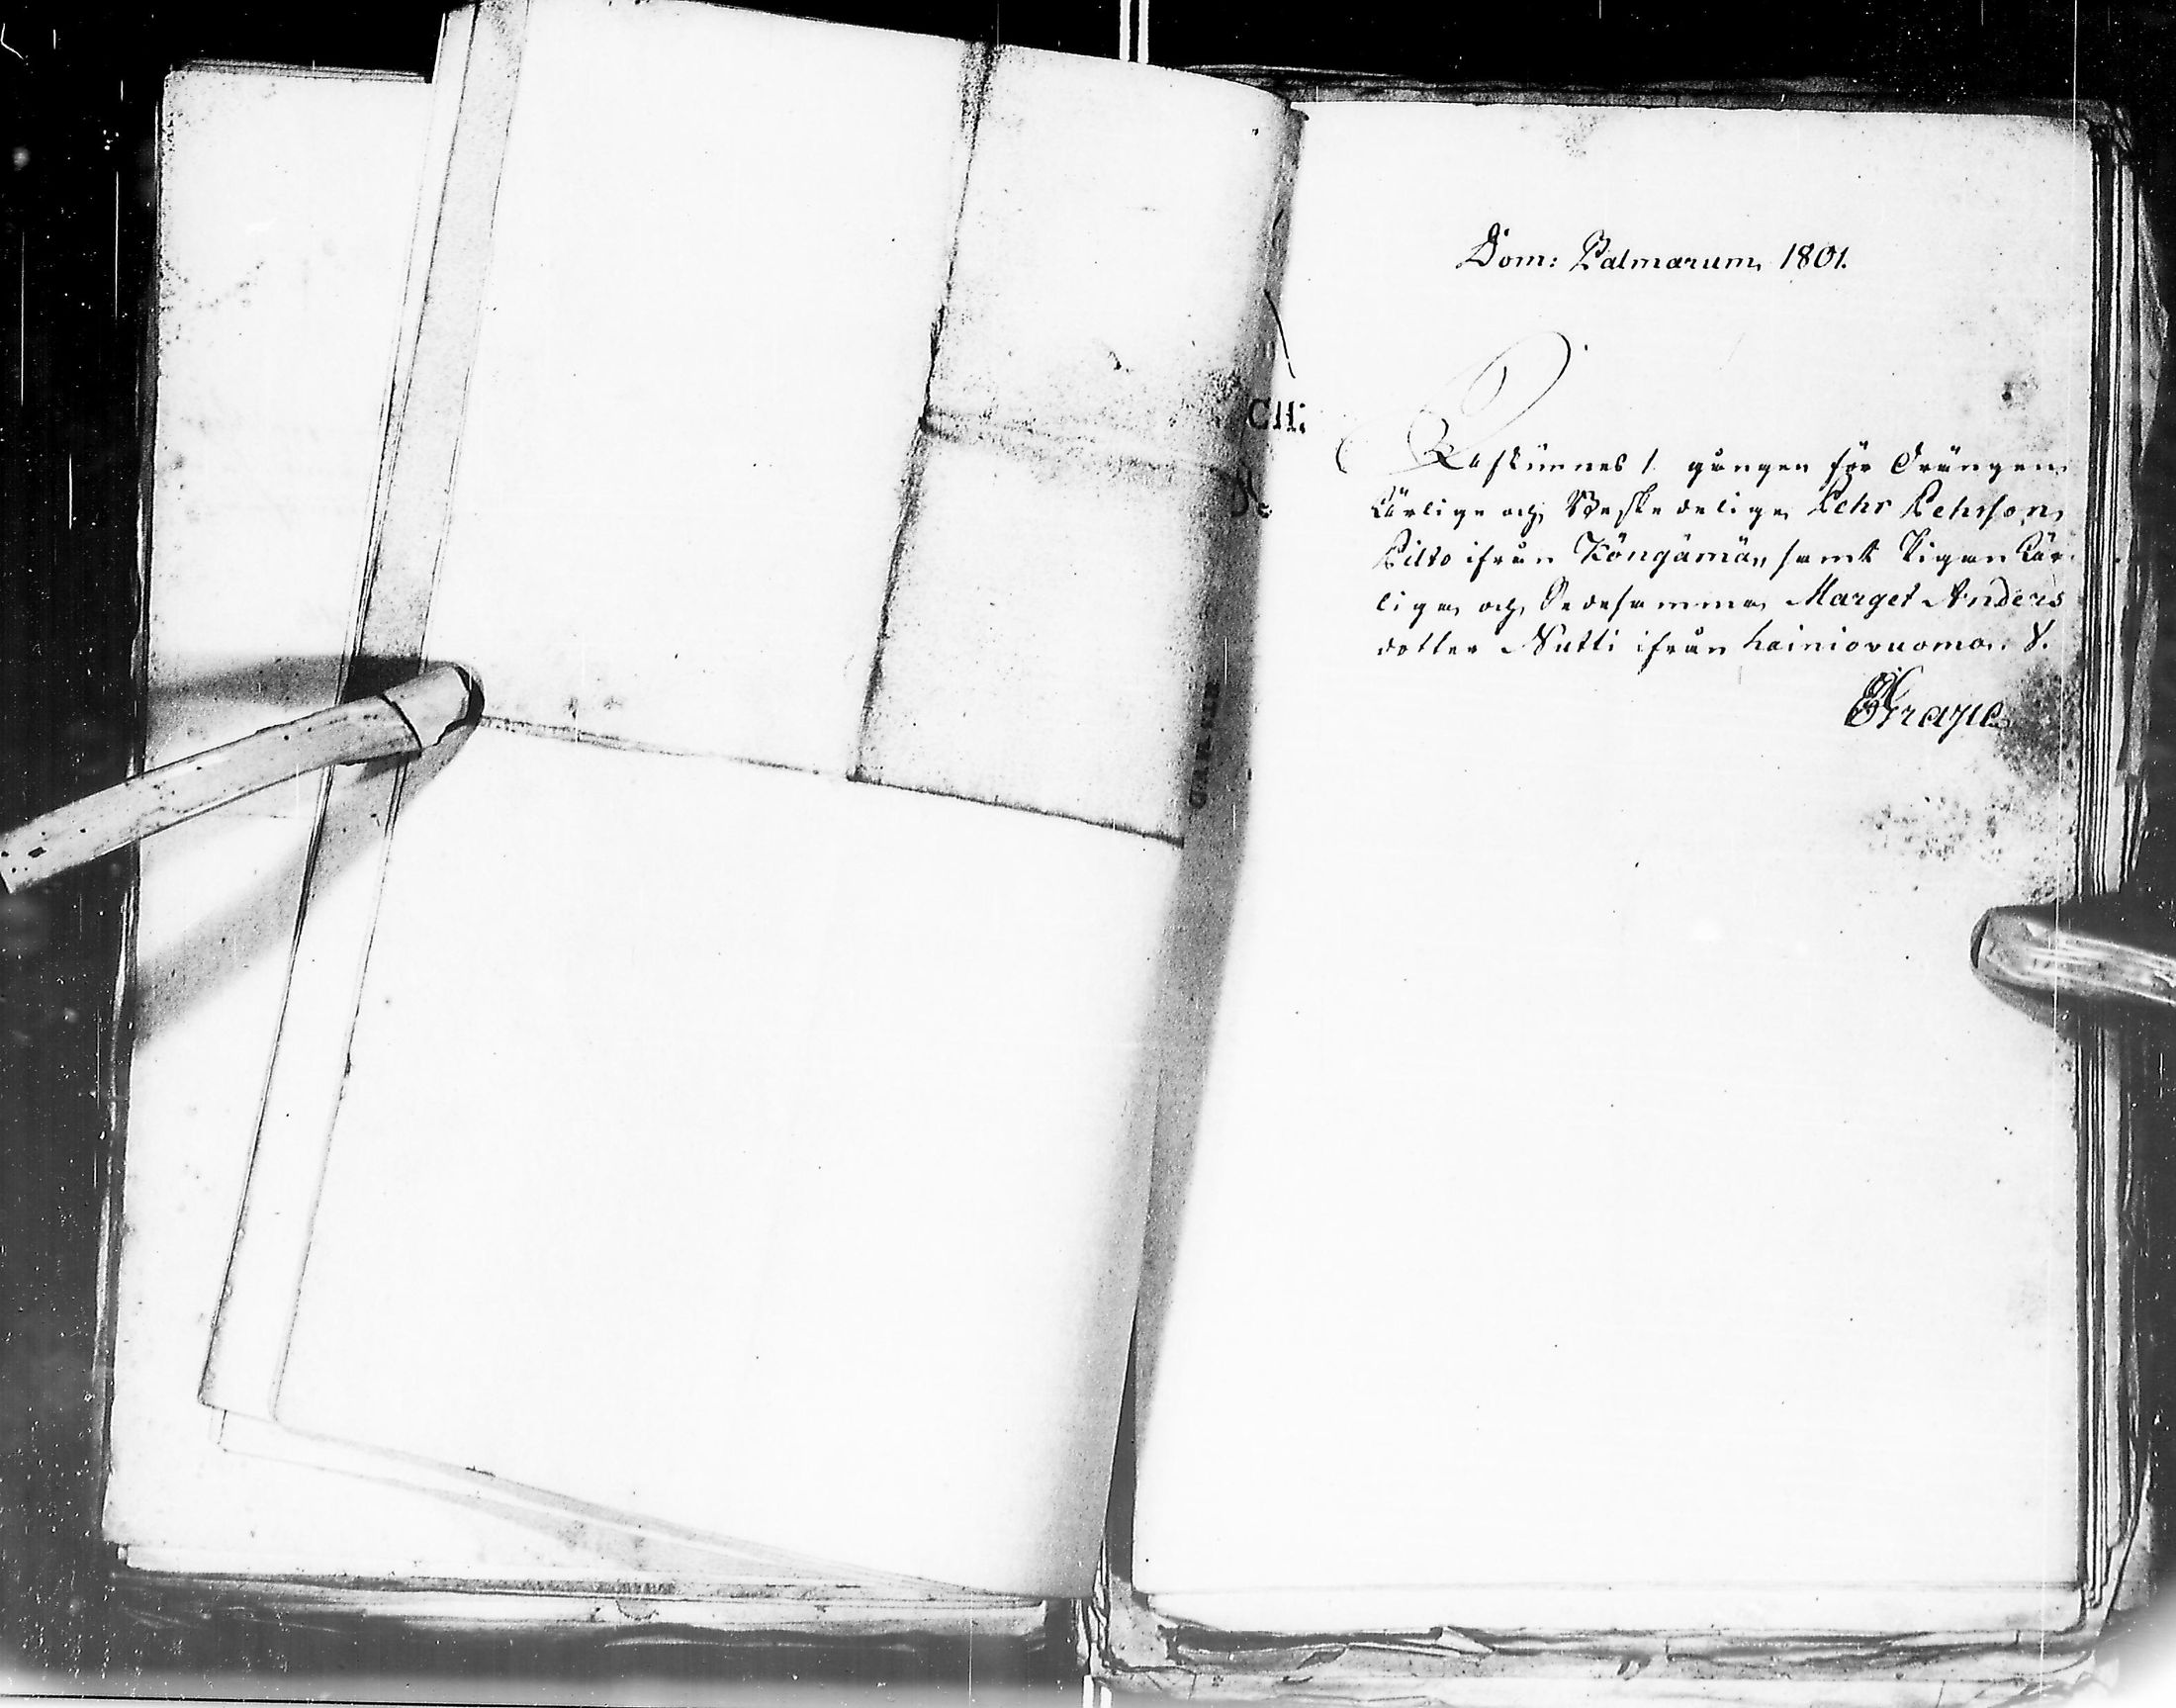 Dom: Palmarum 1801.
Cll:
Afkünnes 1 gången för Drängen
Ärlige och Beskedelige Pehr Pehrson
Pilto ifrån Köngämä, samt Pigan Är-
liga och Dedesamma Marget Anders
dotter Nutti ifrån Lainiovuoma. V.